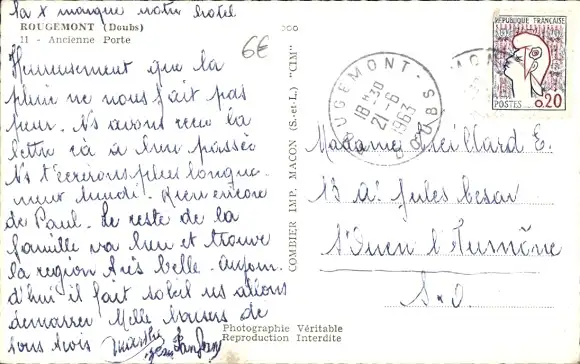 la x marque notre hotel
ROUGEMONT (Doubs)
11 - Ancienne Porte
6€
Heureusement que la
pluie ne nous fait pas
peur. Ns avons reçu la
lettre où a bien passée
Ns t'écrirons plus longue-
ment lundi. Rien encore
de Paul. Le reste de la
famille va bien et trouve
la région très belle. Aujour-
d'hui il fait soleil ns allons
démarrer Mille baisers de
tous trois
COMBIER IMP. MACON (S.-et-L.) "CIM"
Photographie Véritable
Reproduction Interdite
REPUBLIQUE FRANÇAISE
POSTES 0,20
ROUGEMONT
DOUBS
18H30
21-6
1963
Madame Veillard E.
13 Av Jules César
St Ouen l'Aumône
S-O.